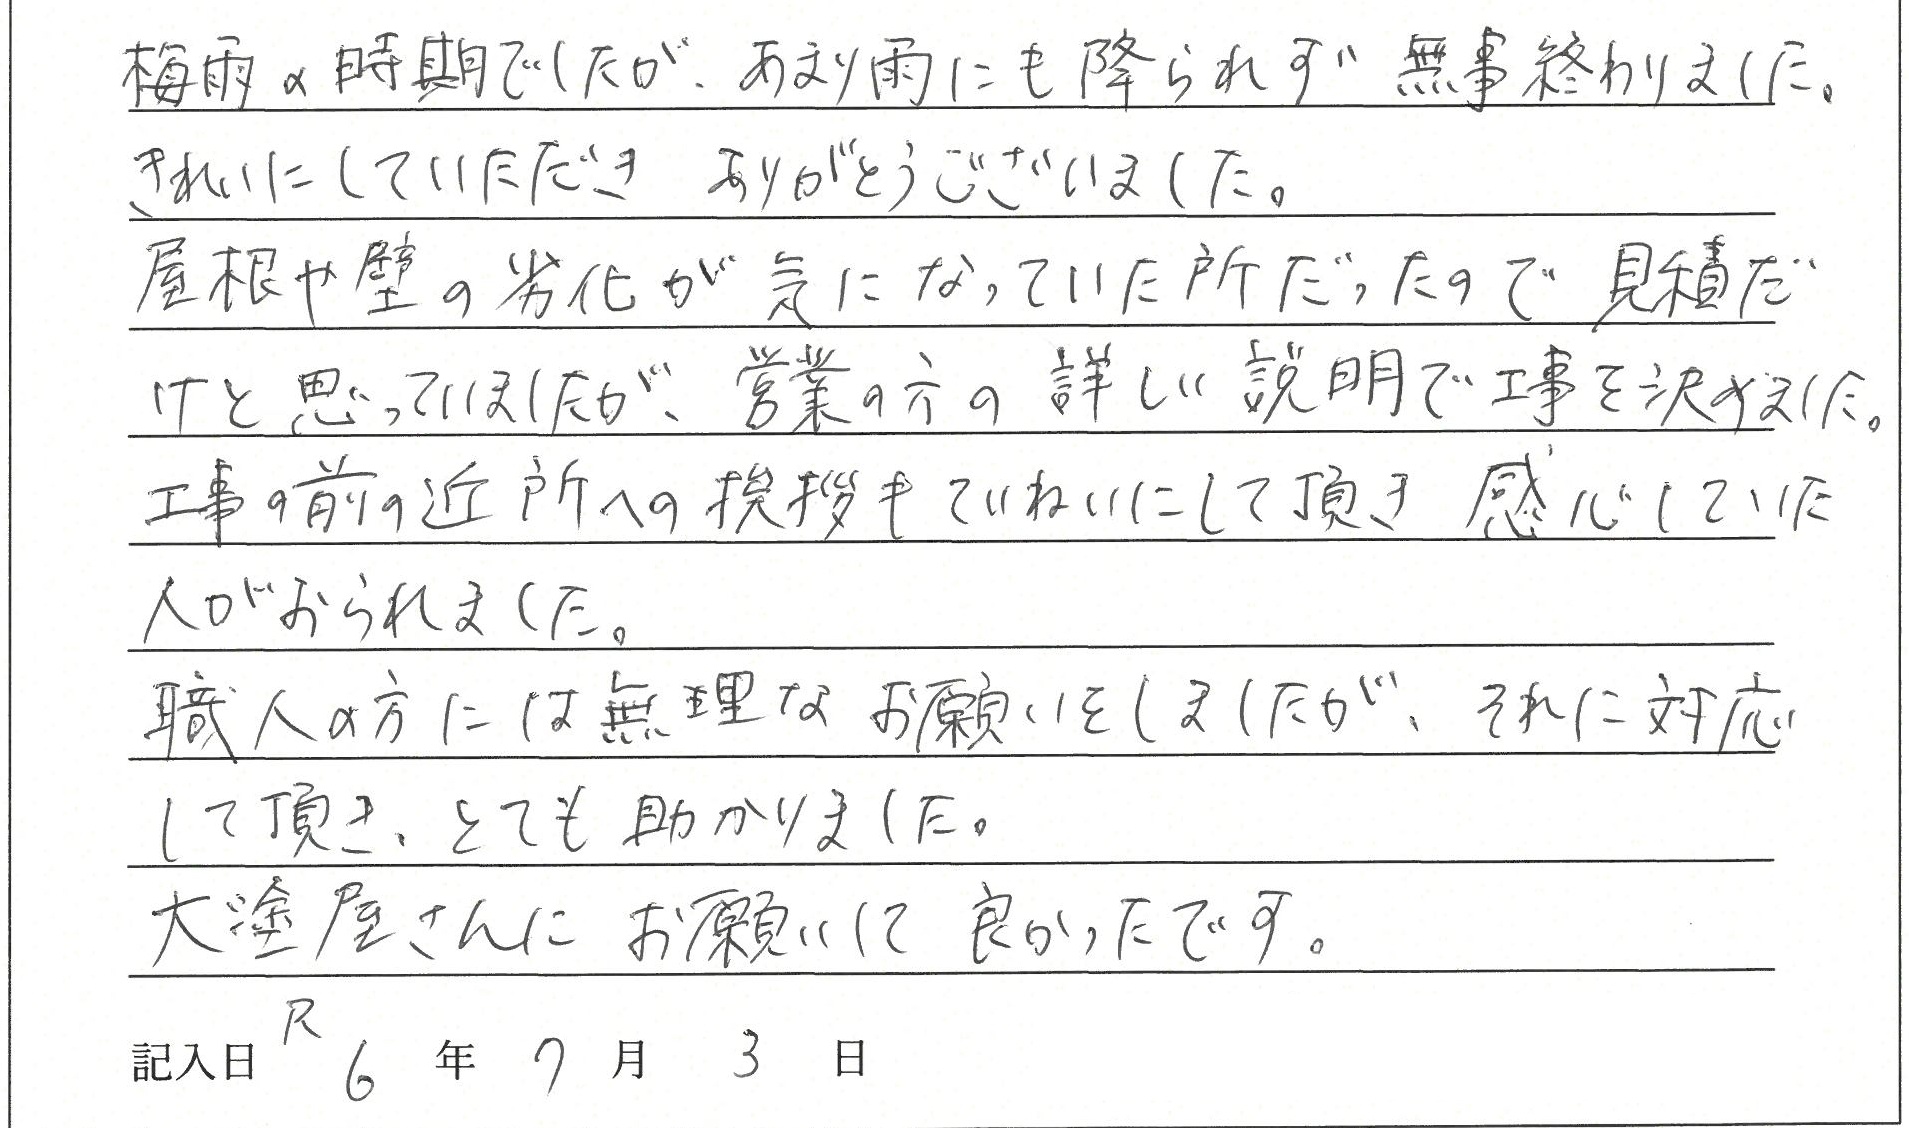 梅雨の時期でしたが、あまり雨にも降られず 無事終わりました。
きれいにしていただき ありがとうございました。
屋根や壁の劣化が気になっていた所だったので 見積だ
けと思っていましたが、営業の方の詳しい説明で工事を決めました。
工事の前の近所への挨拶もていねいにして頂き 感心していた
人がおられました。
職人の方には無理なお願いをしましたが、それに対応
して頂き、とても助かりました。
大塗屋さんにお願いして良かったです。
記入日 R6年 7月 3日